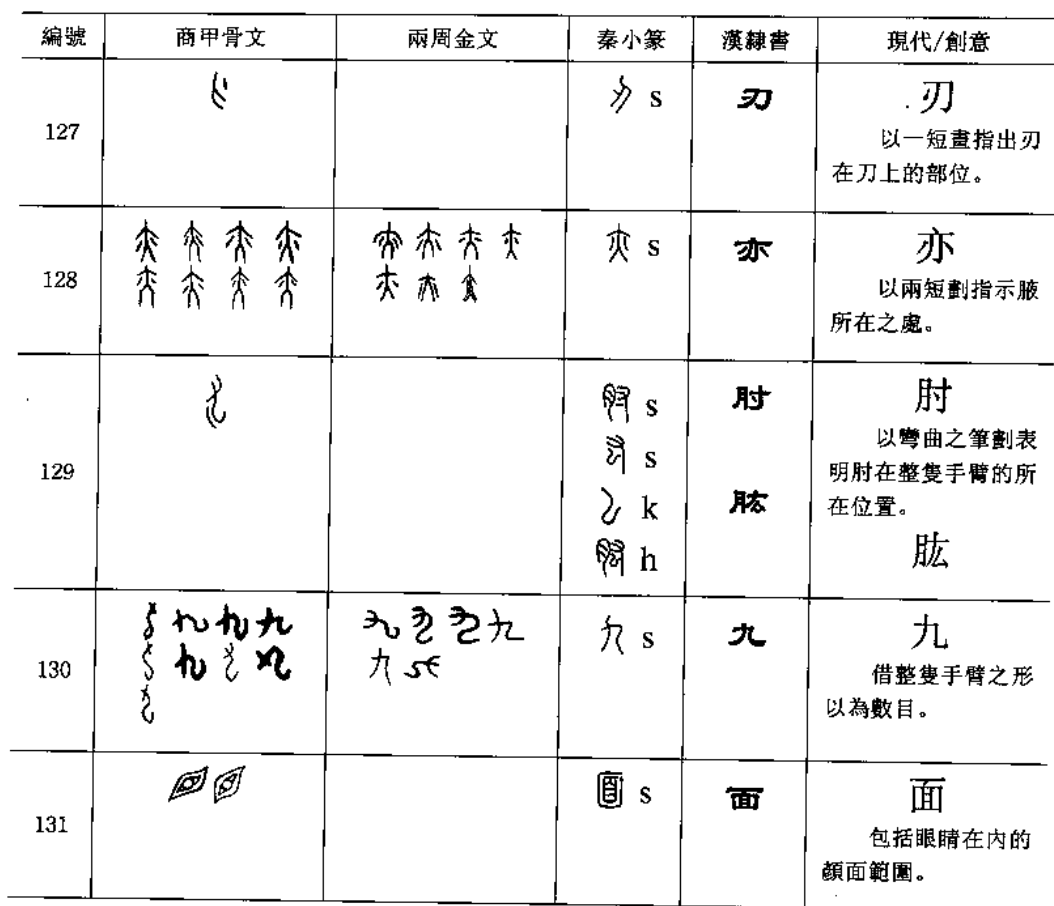 編號 商甲骨文 兩周金文 秦小篆 漢隸書 現代/創意
127 s 刃 刃
以一短畫指出刃
在刀上的部位。
128 s 亦 亦
以兩短劃指示腋
所在之處。
129 s 肘 肘
s
k 肱
h
以彎曲之筆劃表
明肘在整隻手臂的所
在位置。
肱
130 s 九 九
借整隻手臂之形
以為數目。
131 s 面 面
包括眼睛在內的
顏面範圍。